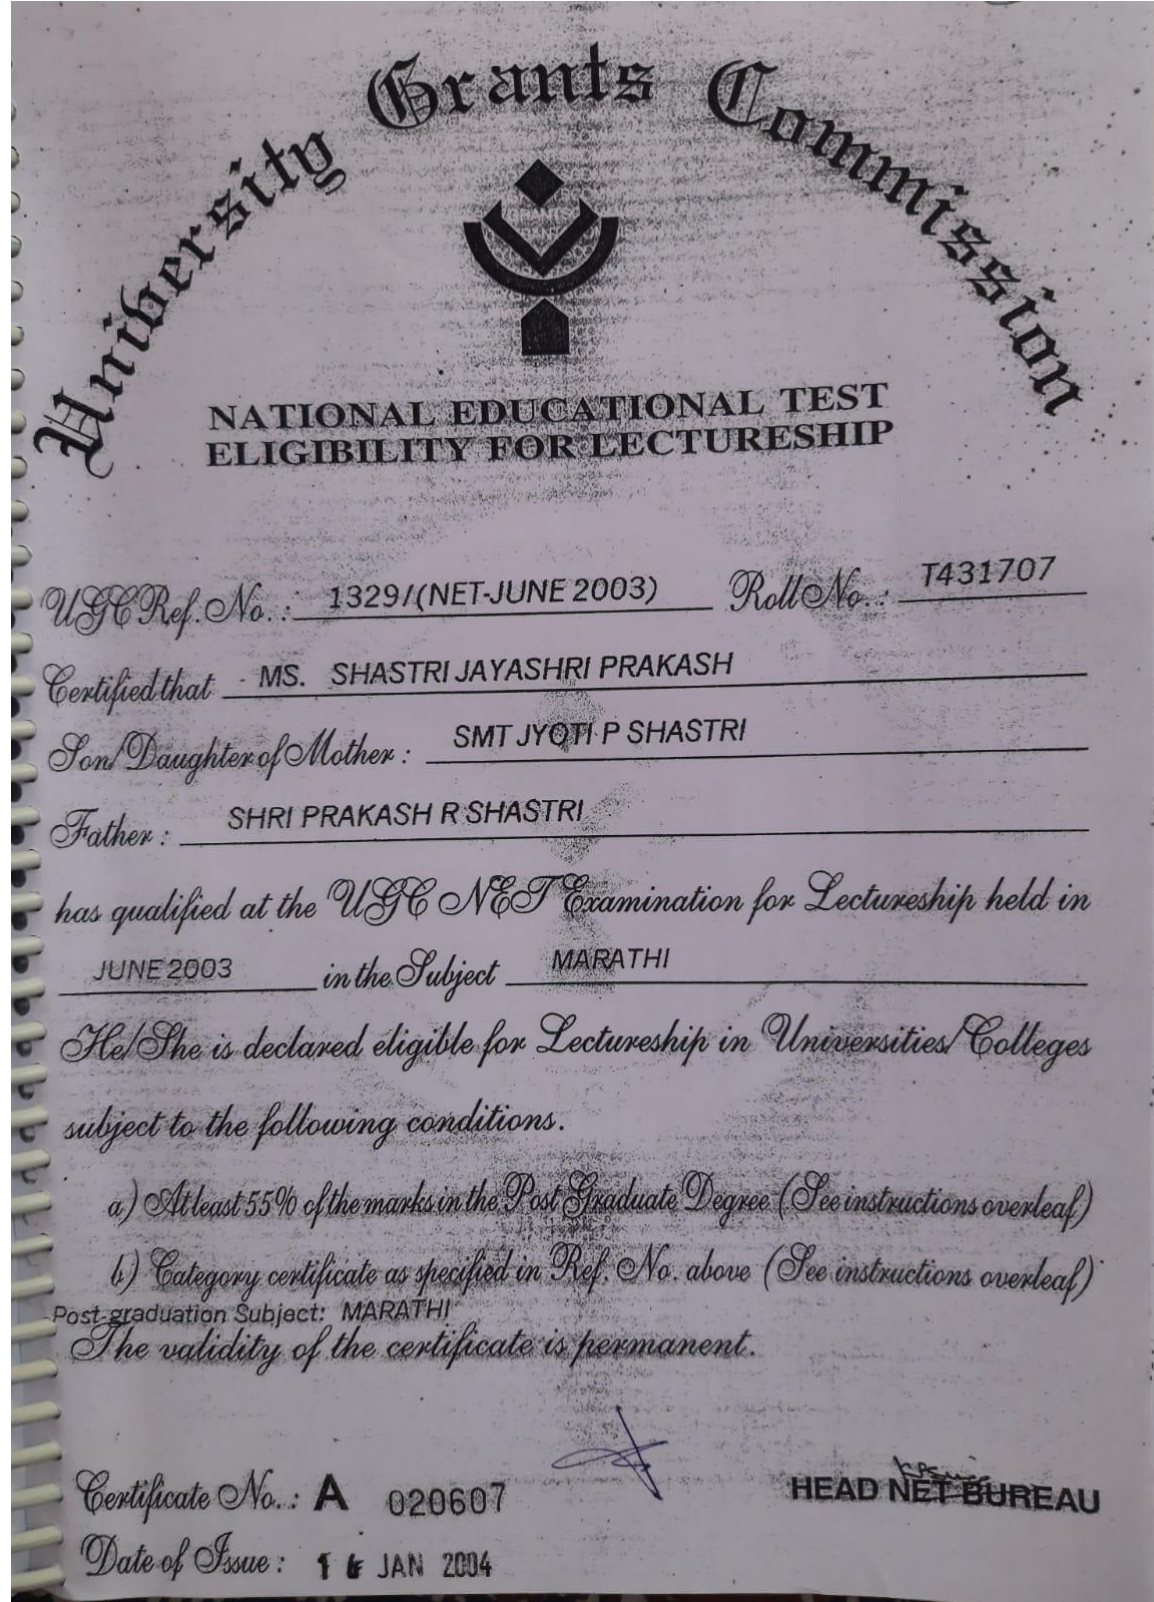 University Grants Commission
NATIONAL EDUCATIONAL TEST
ELIGIBILITY FOR LECTURESHIP
UGC Ref. No. : 1329/(NET-JUNE 2003) Roll No. : T431707
Certified that MS. SHASTRI JAYASHRI PRAKASH
Son/Daughter of Mother : SMT JYOTI P SHASTRI
Father : SHRI PRAKASH R SHASTRI
has qualified at the UGC NET Examination for Lectureship held in
JUNE 2003 in the Subject MARATHI
He/She is declared eligible for Lectureship in Universities/Colleges
subject to the following conditions.
a) At least 55% of the marks in the Post Graduate Degree (See instructions overleaf)
b) Category certificate as specified in Ref. No. above (See instructions overleaf)
Post-graduation Subject: MARATHI
The validity of the certificate is permanent.
Certificate No. : A 020607
HEAD NET BUREAU
Date of Issue : JAN 2004